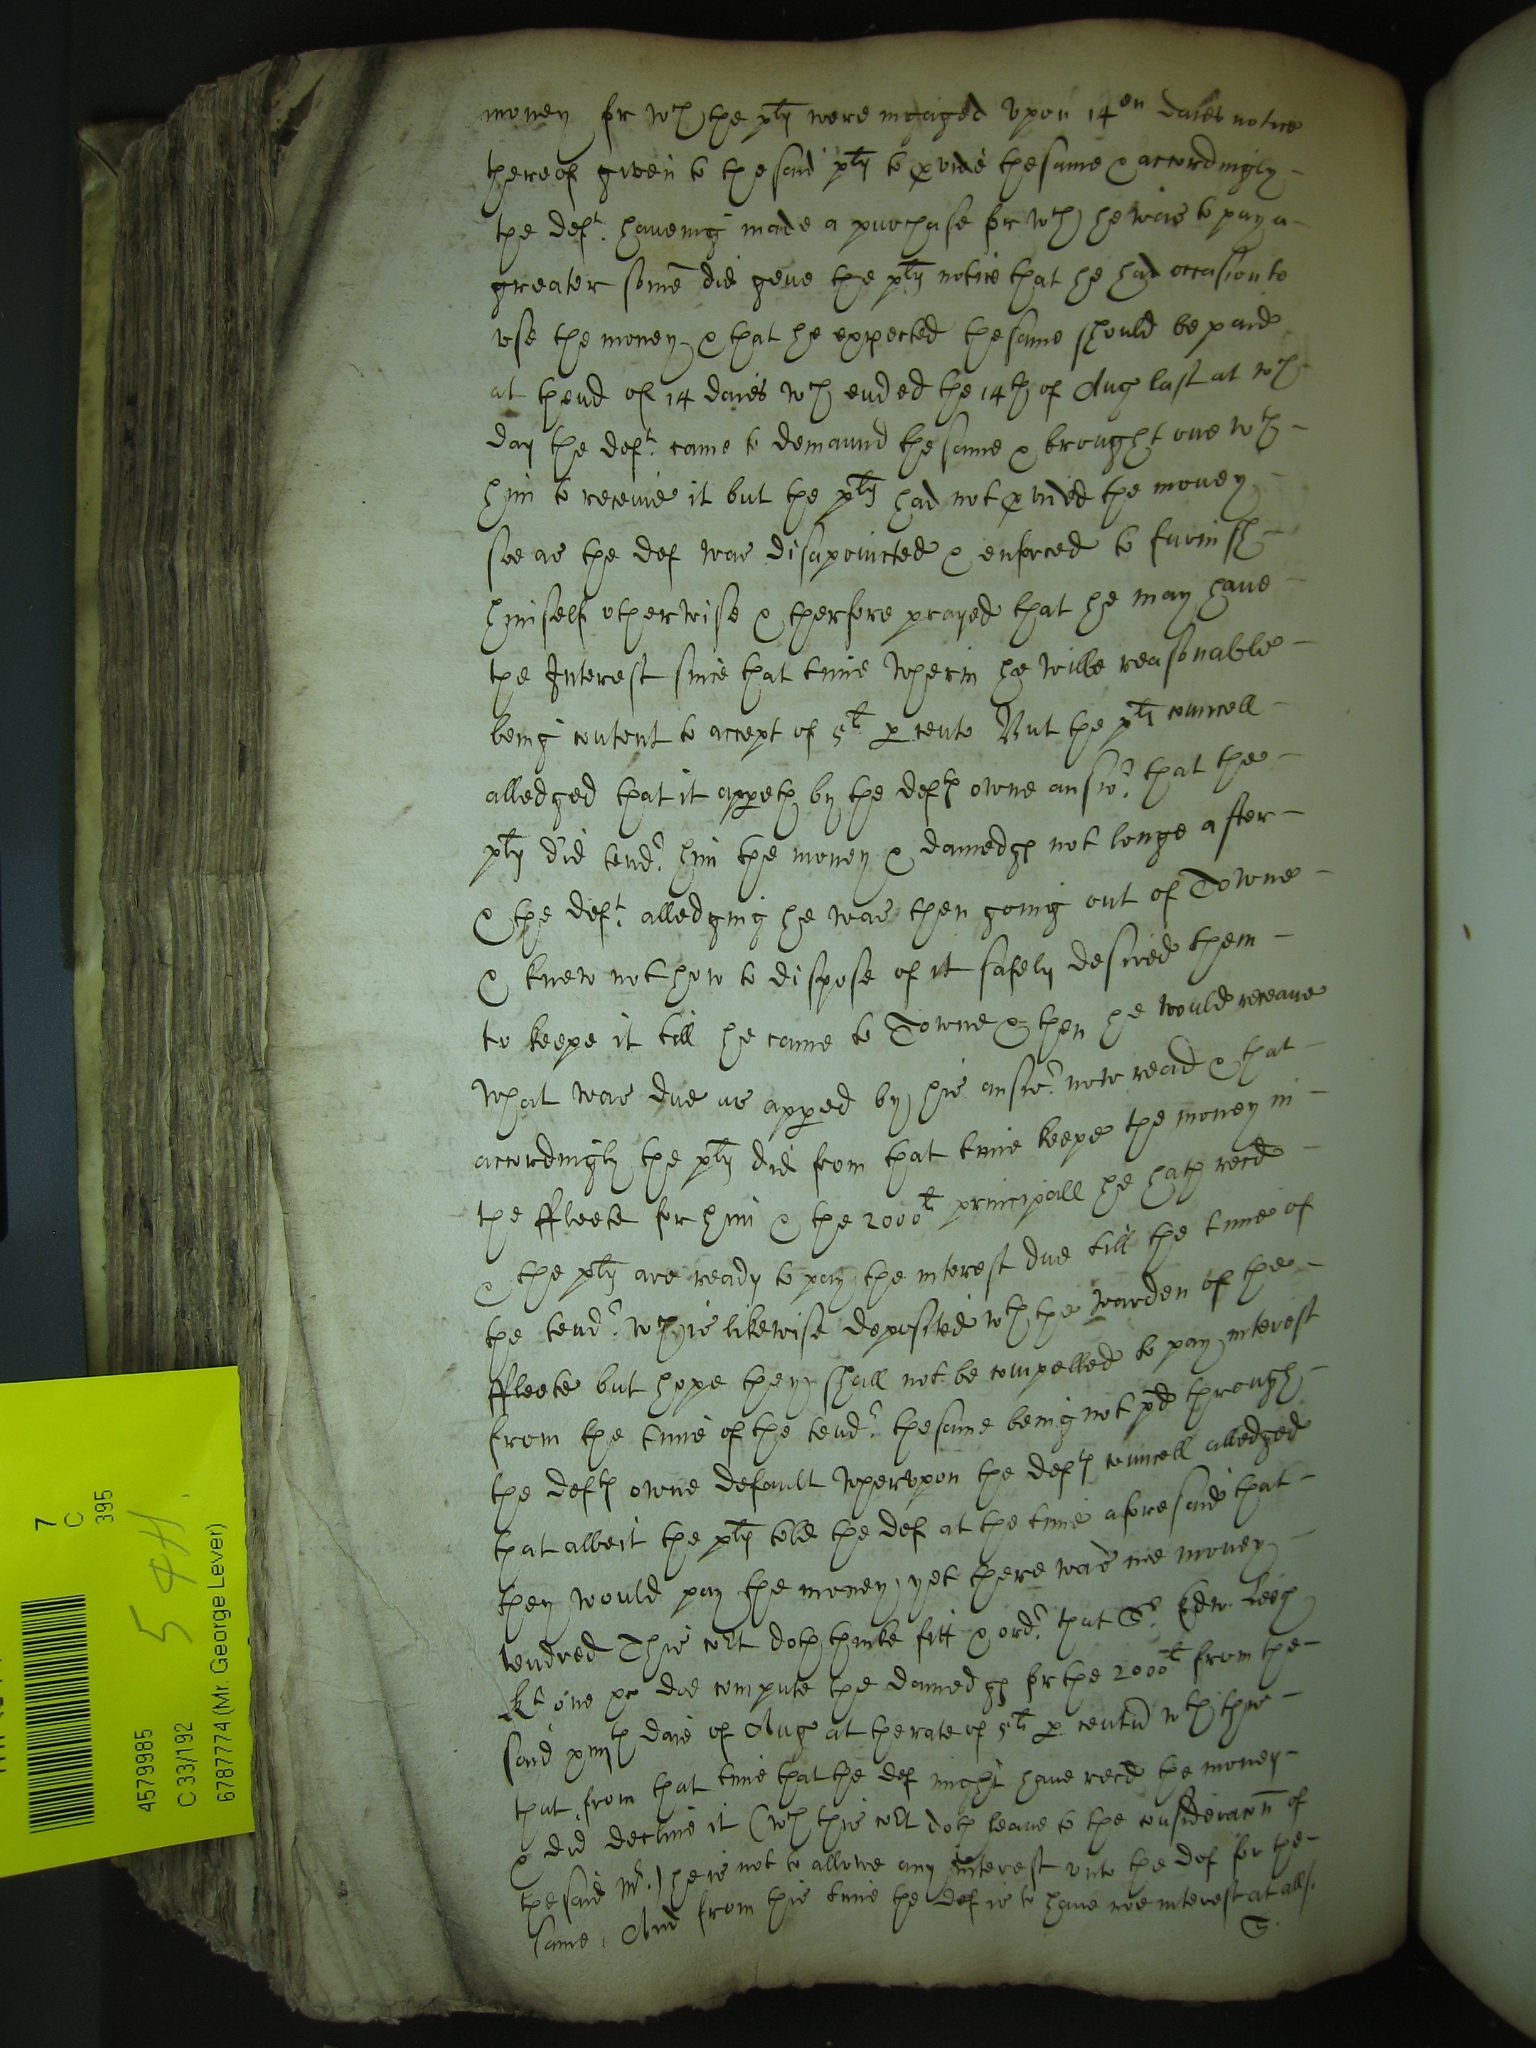 money for wch the plts were ingaged vpon 14en daies notice
thereof given to the said plts to pvide the same & accordingly
the deft. haveing made a purchase for wch he was to pay a
greater some did geue the plts notice that he had occasion to
vse the money & that he expected the same should be paid
at thend of 14 daies wch ended the 14th of Aug last at wch
day the deft. came to demaund the same & brought one wth
him to receiue it but the plts had not pvided the money
soe as the def was disapointed & enforced to furnish
himself otherwise & therfore prayed that he may haue
the Interest since that time wherin he wilbe reasonable
being content to accept of 5l p cento But the plts councell
alledged that it appeth by the defts owne answr. that the
plts did tendr. him the money & damedges not longe after
& the deft. alledging he was then going out of Towne
& knew not how to dispose of it safely desired them
to keepe it till he came to Towne & then he would receaue
what was due as apped by his answr. now read & that
accordingly the plts did from that time keepe the money in
the ffleete for him & the 2000l principall he hath recd
& the plts are ready to pay the interest due till the time of
the tendr. wch is likewise deposited wth the warden of the
ffleete but hope they shall not be compelled to pay interest
from the time of the tendr. the same being not pd through
the defts owne default wherevpon the defts councell alledged
that albeit the plts told the def at the time aforesaid that
they would pay the money yet there was noe money
tendred This cort doth thinke fitt & ordr. that Sr. Edw. Leech
Kt one &c doe compute the damedges for the 2000l from the
said xiiijth daie of Aug at the rate of 5l p centu wth this
that from that time that the def might haue recd the money
& did decline it (wch this cort doth leaue to the consideracon of
the said Mr.) he is not to allowe any Interest vnto the def for the
same, And from this time the def is to haue noe interest at all.
7
C
395
5 4H.
4579985
C 33/192
6787774 (Mr. George Lever)